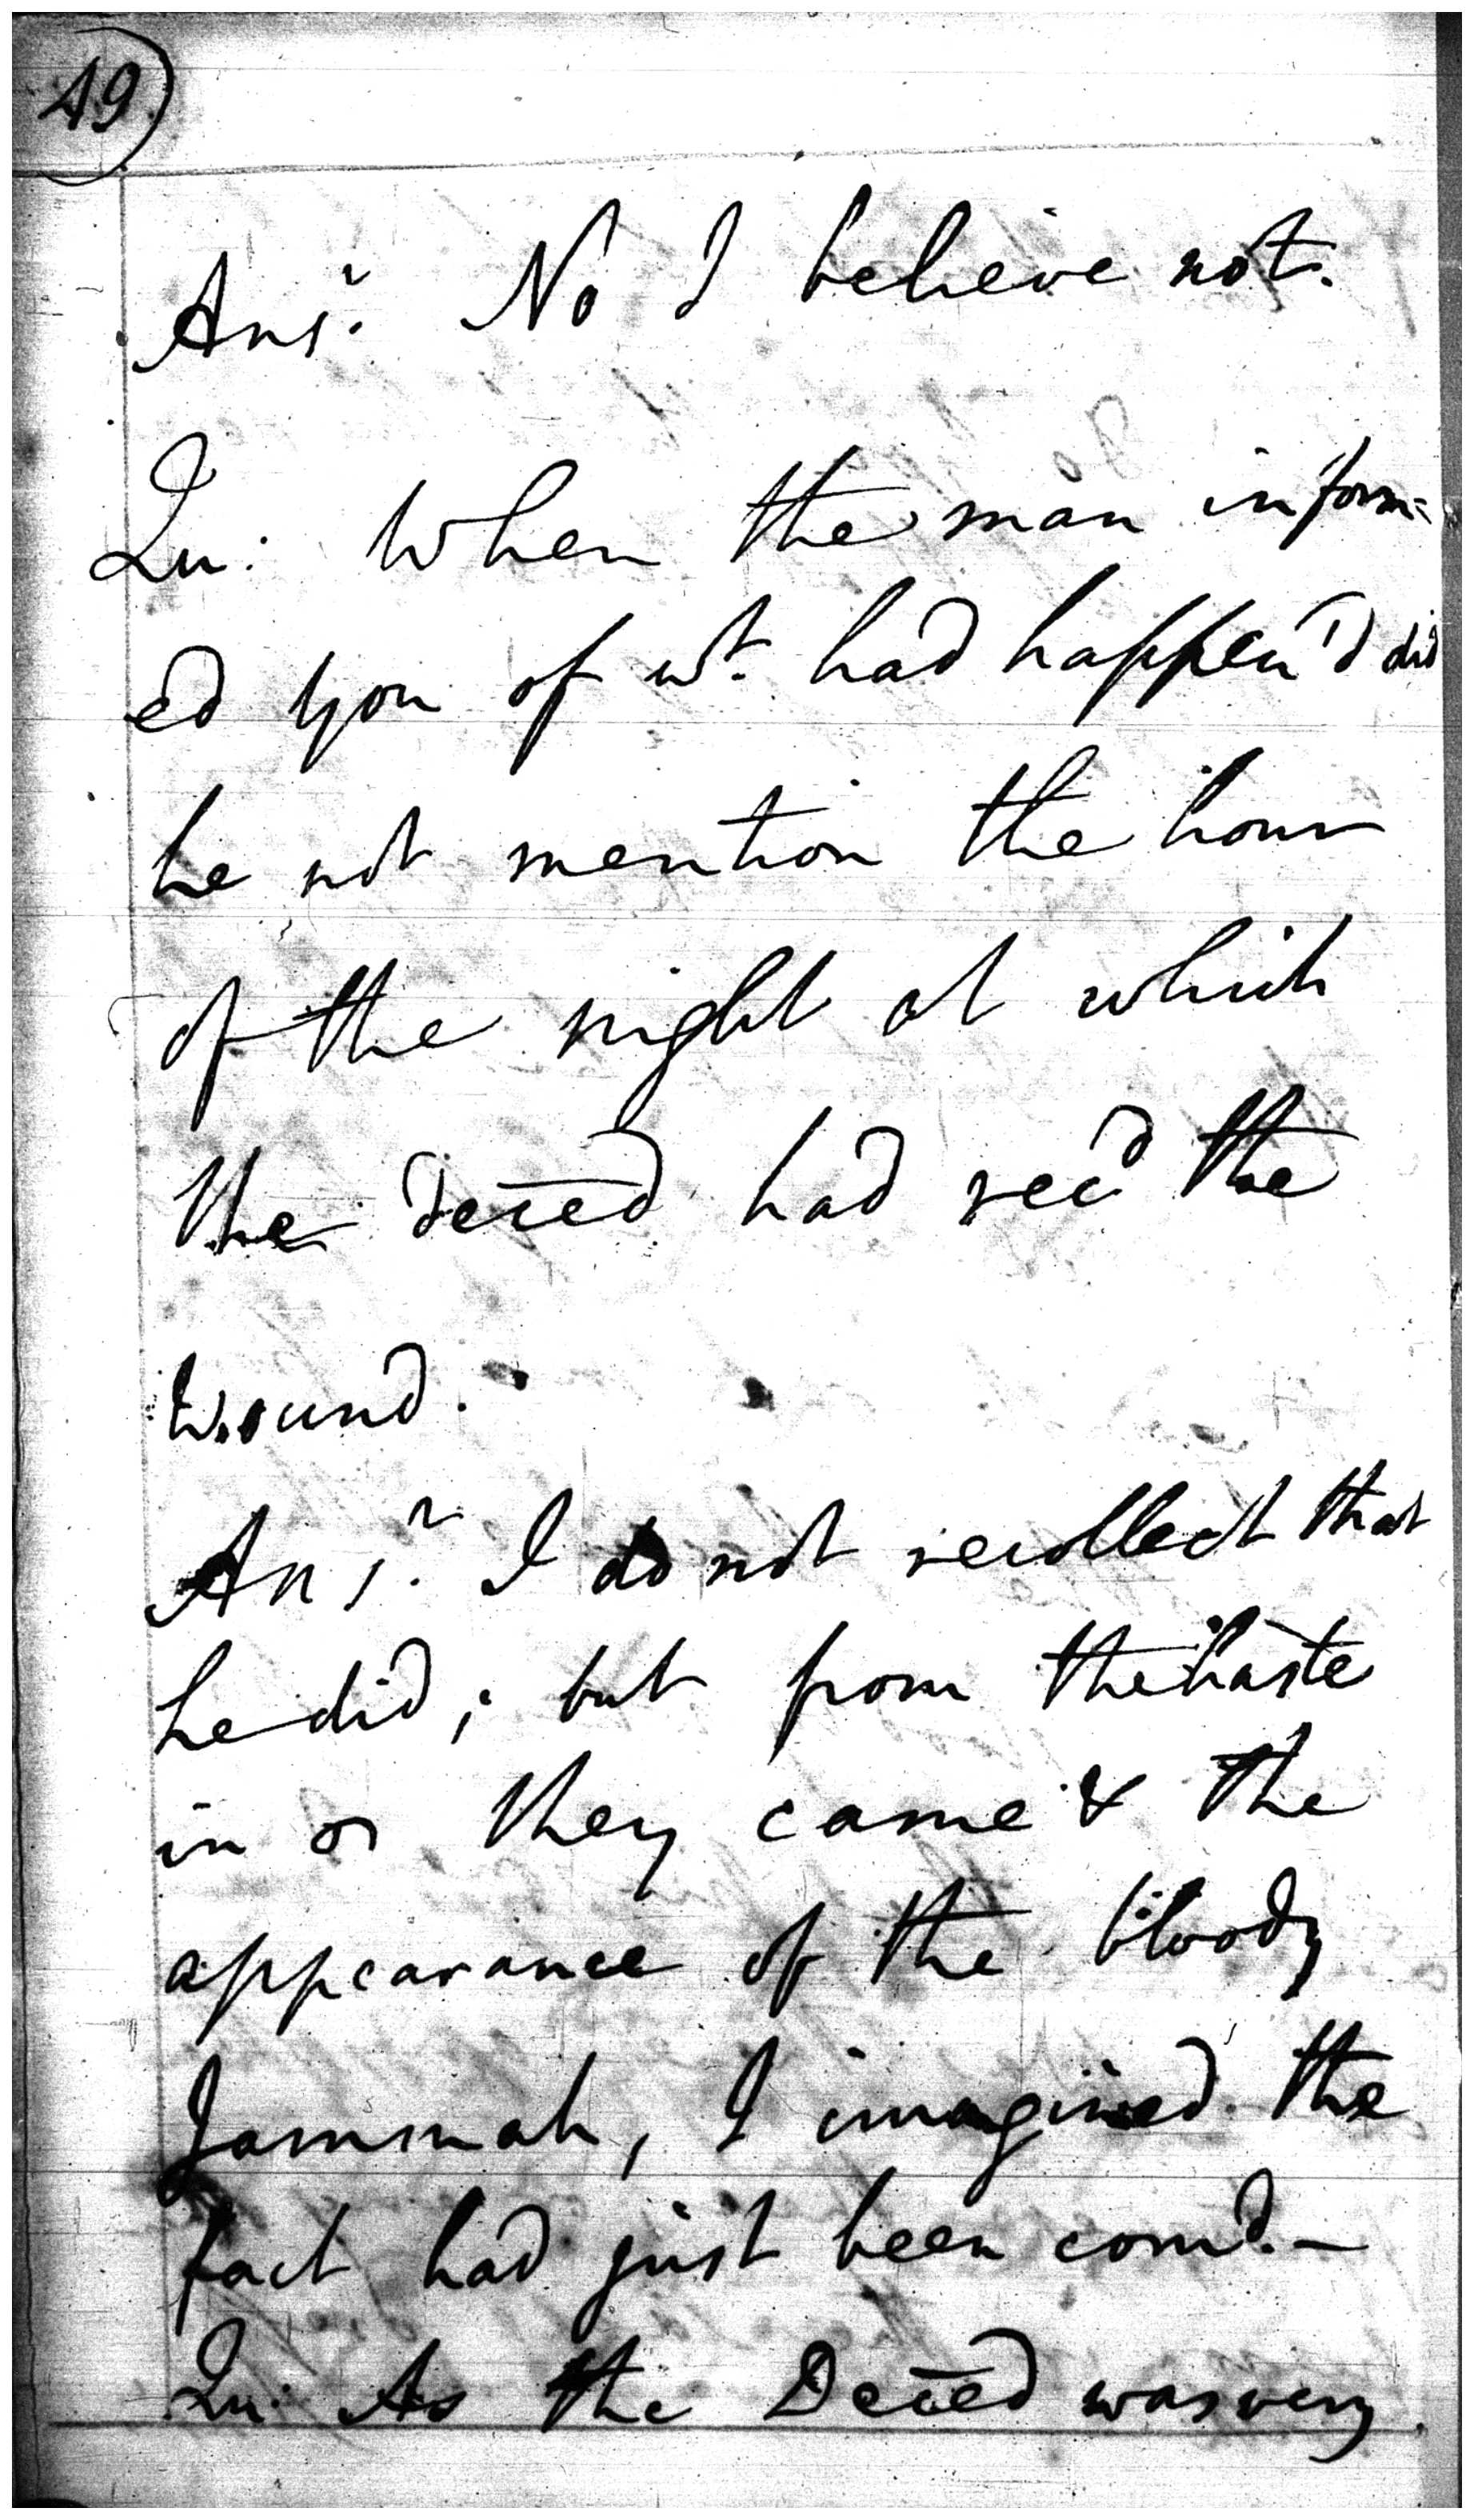 49)
Ansr. No I believe not.
Qu: When the man inform=
ed you of wt. had happen'd did
he not mention the hour
of the night at which
the deced had recd the
wound.
Ansr. I do not recollect that
he did; but from the haste
in they came & the
appearance of the bloody
Jammah, I imagined the
fact had just been comd.—
Qu: As the Deced was very